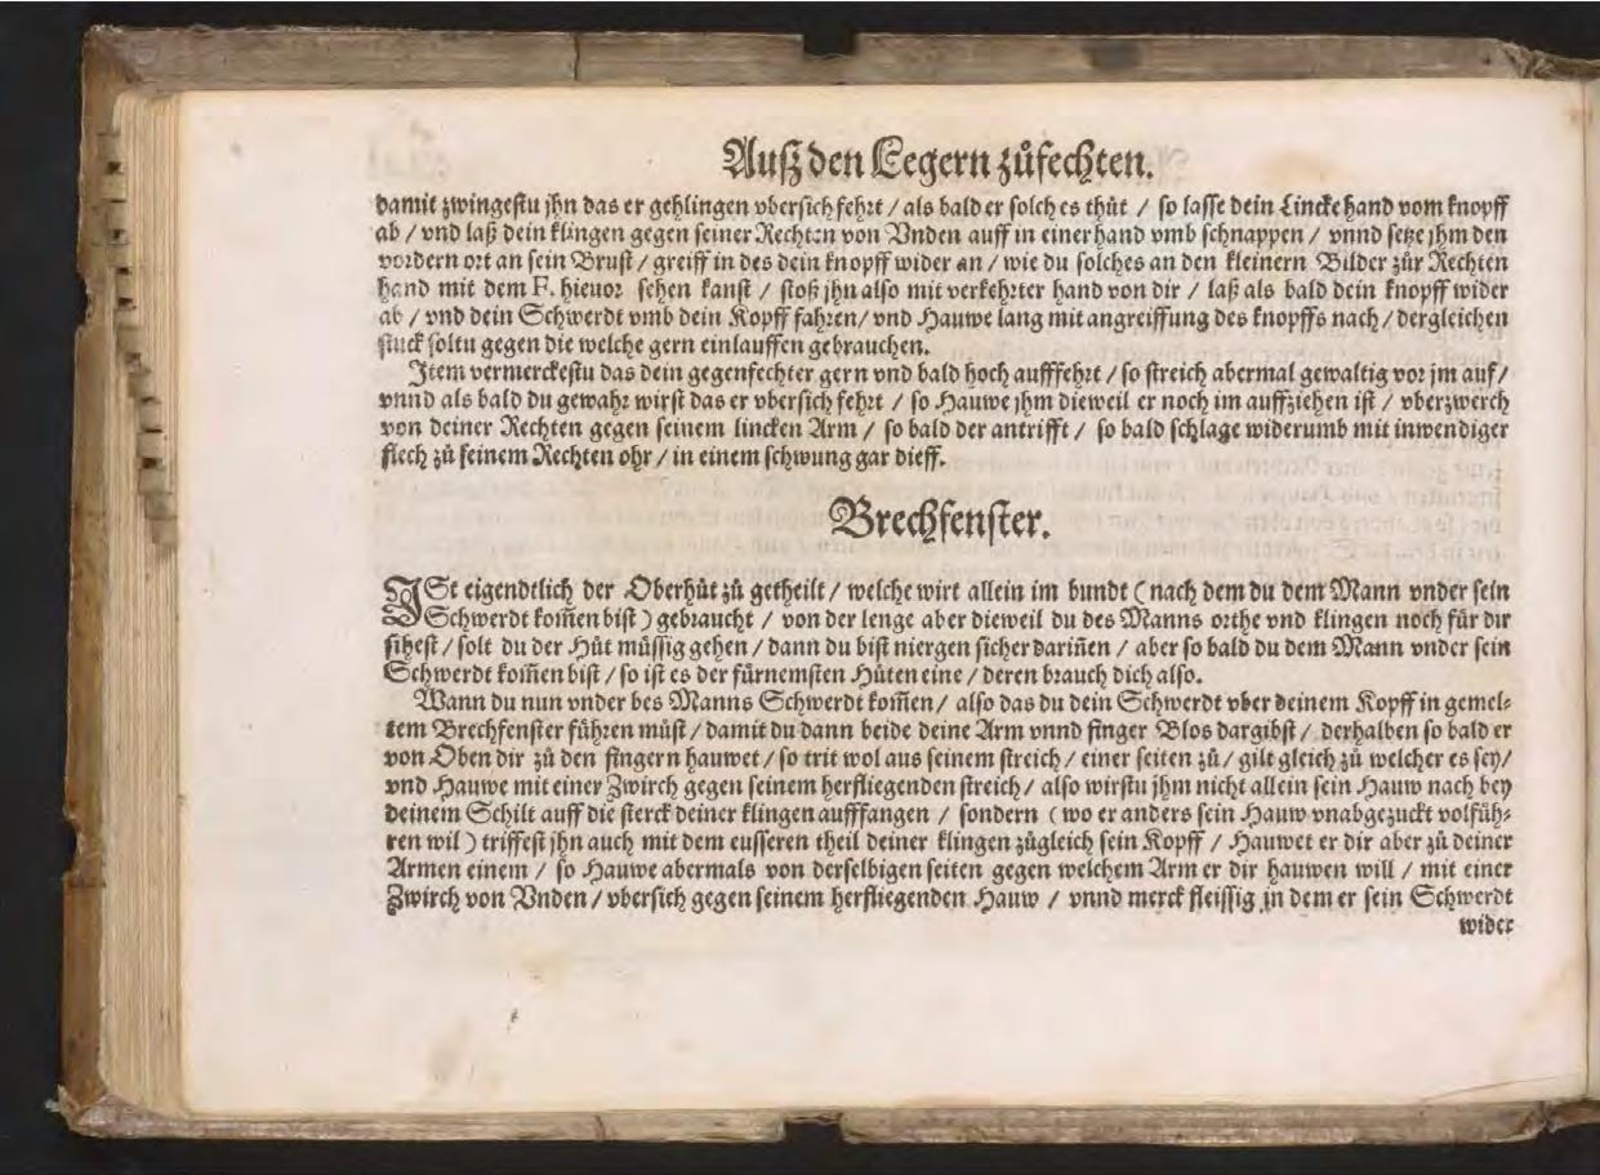 Auß den Legern zůfechten.
damit zwingestu jhn das er gehlingen vbersich fehrt / als bald er solches thůt / so lasse dein Lincke hand vom knopff
ab / vnd laß dein klingen gegen seiner Rechten von Vnden auff in einer hand vmb schnappen / vnnd setze jhm den
vordern ort an sein Brust / greiff in des dein knopff wider an / wie du solches an den kleinern Bilder zůr Rechten
hand mit dem F. hieuor sehen kanst / stoß jhn also mit verkehrter hand von dir / laß als bald dein knopff wider
ab / vnd dein Schwerdt vmb dein Kopff fahren / vnd Hauwe lang mit angreiffung des knopffs nach / dergleichen
stuck soltu gegen die welche gern einlauffen gebrauchen.
Item vermerckestu das dein gegenfechter gern vnd bald hoch aufffehrt / so streich abermal gewaltig vor jm auf /
vnnd als bald du gewahr wirst das er vbersich fehrt / so Hauwe jhm dieweil er noch im auffziehen ist / vberzwerch
von deiner Rechten gegen seinem lincken Arm / so bald der antrifft / so bald schlage widerumb mit inwendiger
flech zů seinem Rechten ohr / in einem schwung gar dieff.
Brechfenster.
ISt eigendtlich der Oberhůt zů getheilt / welche wirt allein im bundt ( nach dem du dem Mann vnder sein
Schwerdt kom̃en bist ) gebraucht / von der lenge aber dieweil du des Manns orthe vnd klingen noch für dir
sihest / solt du der Hůt müssig gehen / dann du bist niergen sicher darin̄en / aber so bald du dem Mann vnder sein
Schwerdt kom̃en bist / so ist es der fürnemsten Hůten eine / deren brauch dich also.
Wann du nun vnder bes Manns Schwerdt kom̃en / also das du dein Schwerdt vber deinem Kopff in gemel⸗
tem Brechfenster führen můst / damit du dann beide deine Arm vnnd finger Blos dargibst / derhalben so bald er
von Oben dir zů den fingern hauwet / so trit wol aus seinem streich / einer seiten zů / gilt gleich zů welcher es sey /
vnd Hauwe mit einer Zwirch gegen seinem herfliegenden streich / also wirstu jhm nicht allein sein Hauw nach bey
deinem Schilt auff die sterck deiner klingen aufffangen / sondern ( wo er anders sein Hauw vnabgezuckt volfüh⸗
ren wil ) triffest jhn auch mit dem eusseren theil deiner klingen zůgleich sein Kopff / Hauwet er dir aber zů deiner
Armen einem / so Hauwe abermals von derselbigen seiten gegen welchem Arm er dir hauwen will / mit einer
Zwirch von Vnden / vbersich gegen seinem herfliegenden Hauw / vnnd merck fleissig in dem er sein Schwerdt
wider